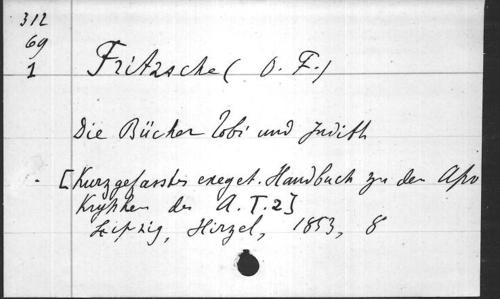 312
69
1
Fritzsche ( O. F. )
Die Bücher Tobi und Judith
[ Kurzgefasstes exeget. Handbuch zu den Apo
kryphen des A. T. 2 ]
Leipzig, Hirzel, 1853, 8